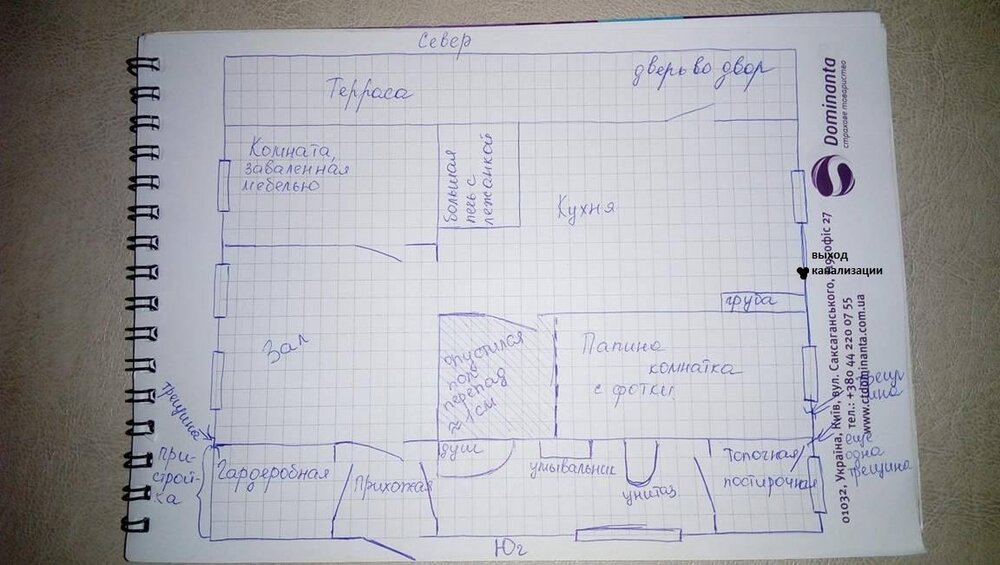 Север
Терраса
дверь во двор
Комната,
заваленная
мебелью
большая
печь с
лежанкой
Кухня
выход
канализации
груба
Зал
опустился
пол
перепад
≈ 1 см
Папина
комнатка
с фотки
трещина
трещи
ина
еще
одна
трещина
при-
строй-
ка
Гардеробная
Прихожая
душ
умывальник
унитаз
Топочная
постирочная
Юг
Dominanta
страхове товариство
01032, Україна, Київ, вул. Саксаганського, офіс 27
тел.: +380 44 220 07 55
www.ctdominanta.com.ua